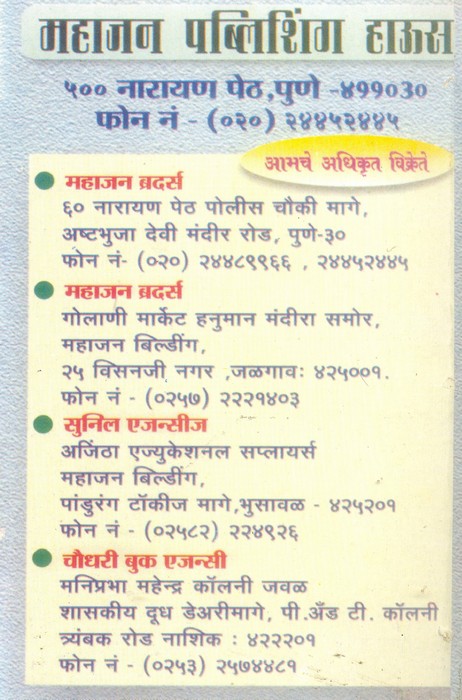 महाजन पब्लिशिंग हाऊस
५०० नारायण पेठ,पुणे -४११०३०
फोन नं - (०२०) २४४५२४४५
आमचे अधिकृत विक्रेते
महाजन ब्रदर्स
६० नारायण पेठ पोलीस चौकी मागे,
अष्टभुजा देवी मंदीर रोड, पुणे-३०
फोन नं- (०२०) २४४८९९६६ , २४४५२४४५
महाजन ब्रदर्स
गोलाणी मार्केट हनुमान मंदीरा समोर,
महाजन बिल्डींग,
२५ विसनजी नगर ,जळगावः ४२५००१.
फोन नं - (०२५७) २२२१४०३
सुनिल एजन्सीज
अजिंठा एज्युकेशनल सप्लायर्स
महाजन बिल्डींग,
पांडुरंग टॉकीज मागे,भुसावळ - ४२५२०१
फोन नं - (०२५८२) २२४९२६
चौधरी बुक एजन्सी
मनिप्रभा महेन्द्र कॉलनी जवळ
शासकीय दूध डेअरीमागे, पी.अँड टी. कॉलनी
त्र्यंबक रोड नाशिक : ४२२२०१
फोन नं - (०२५३) २५७४४८१